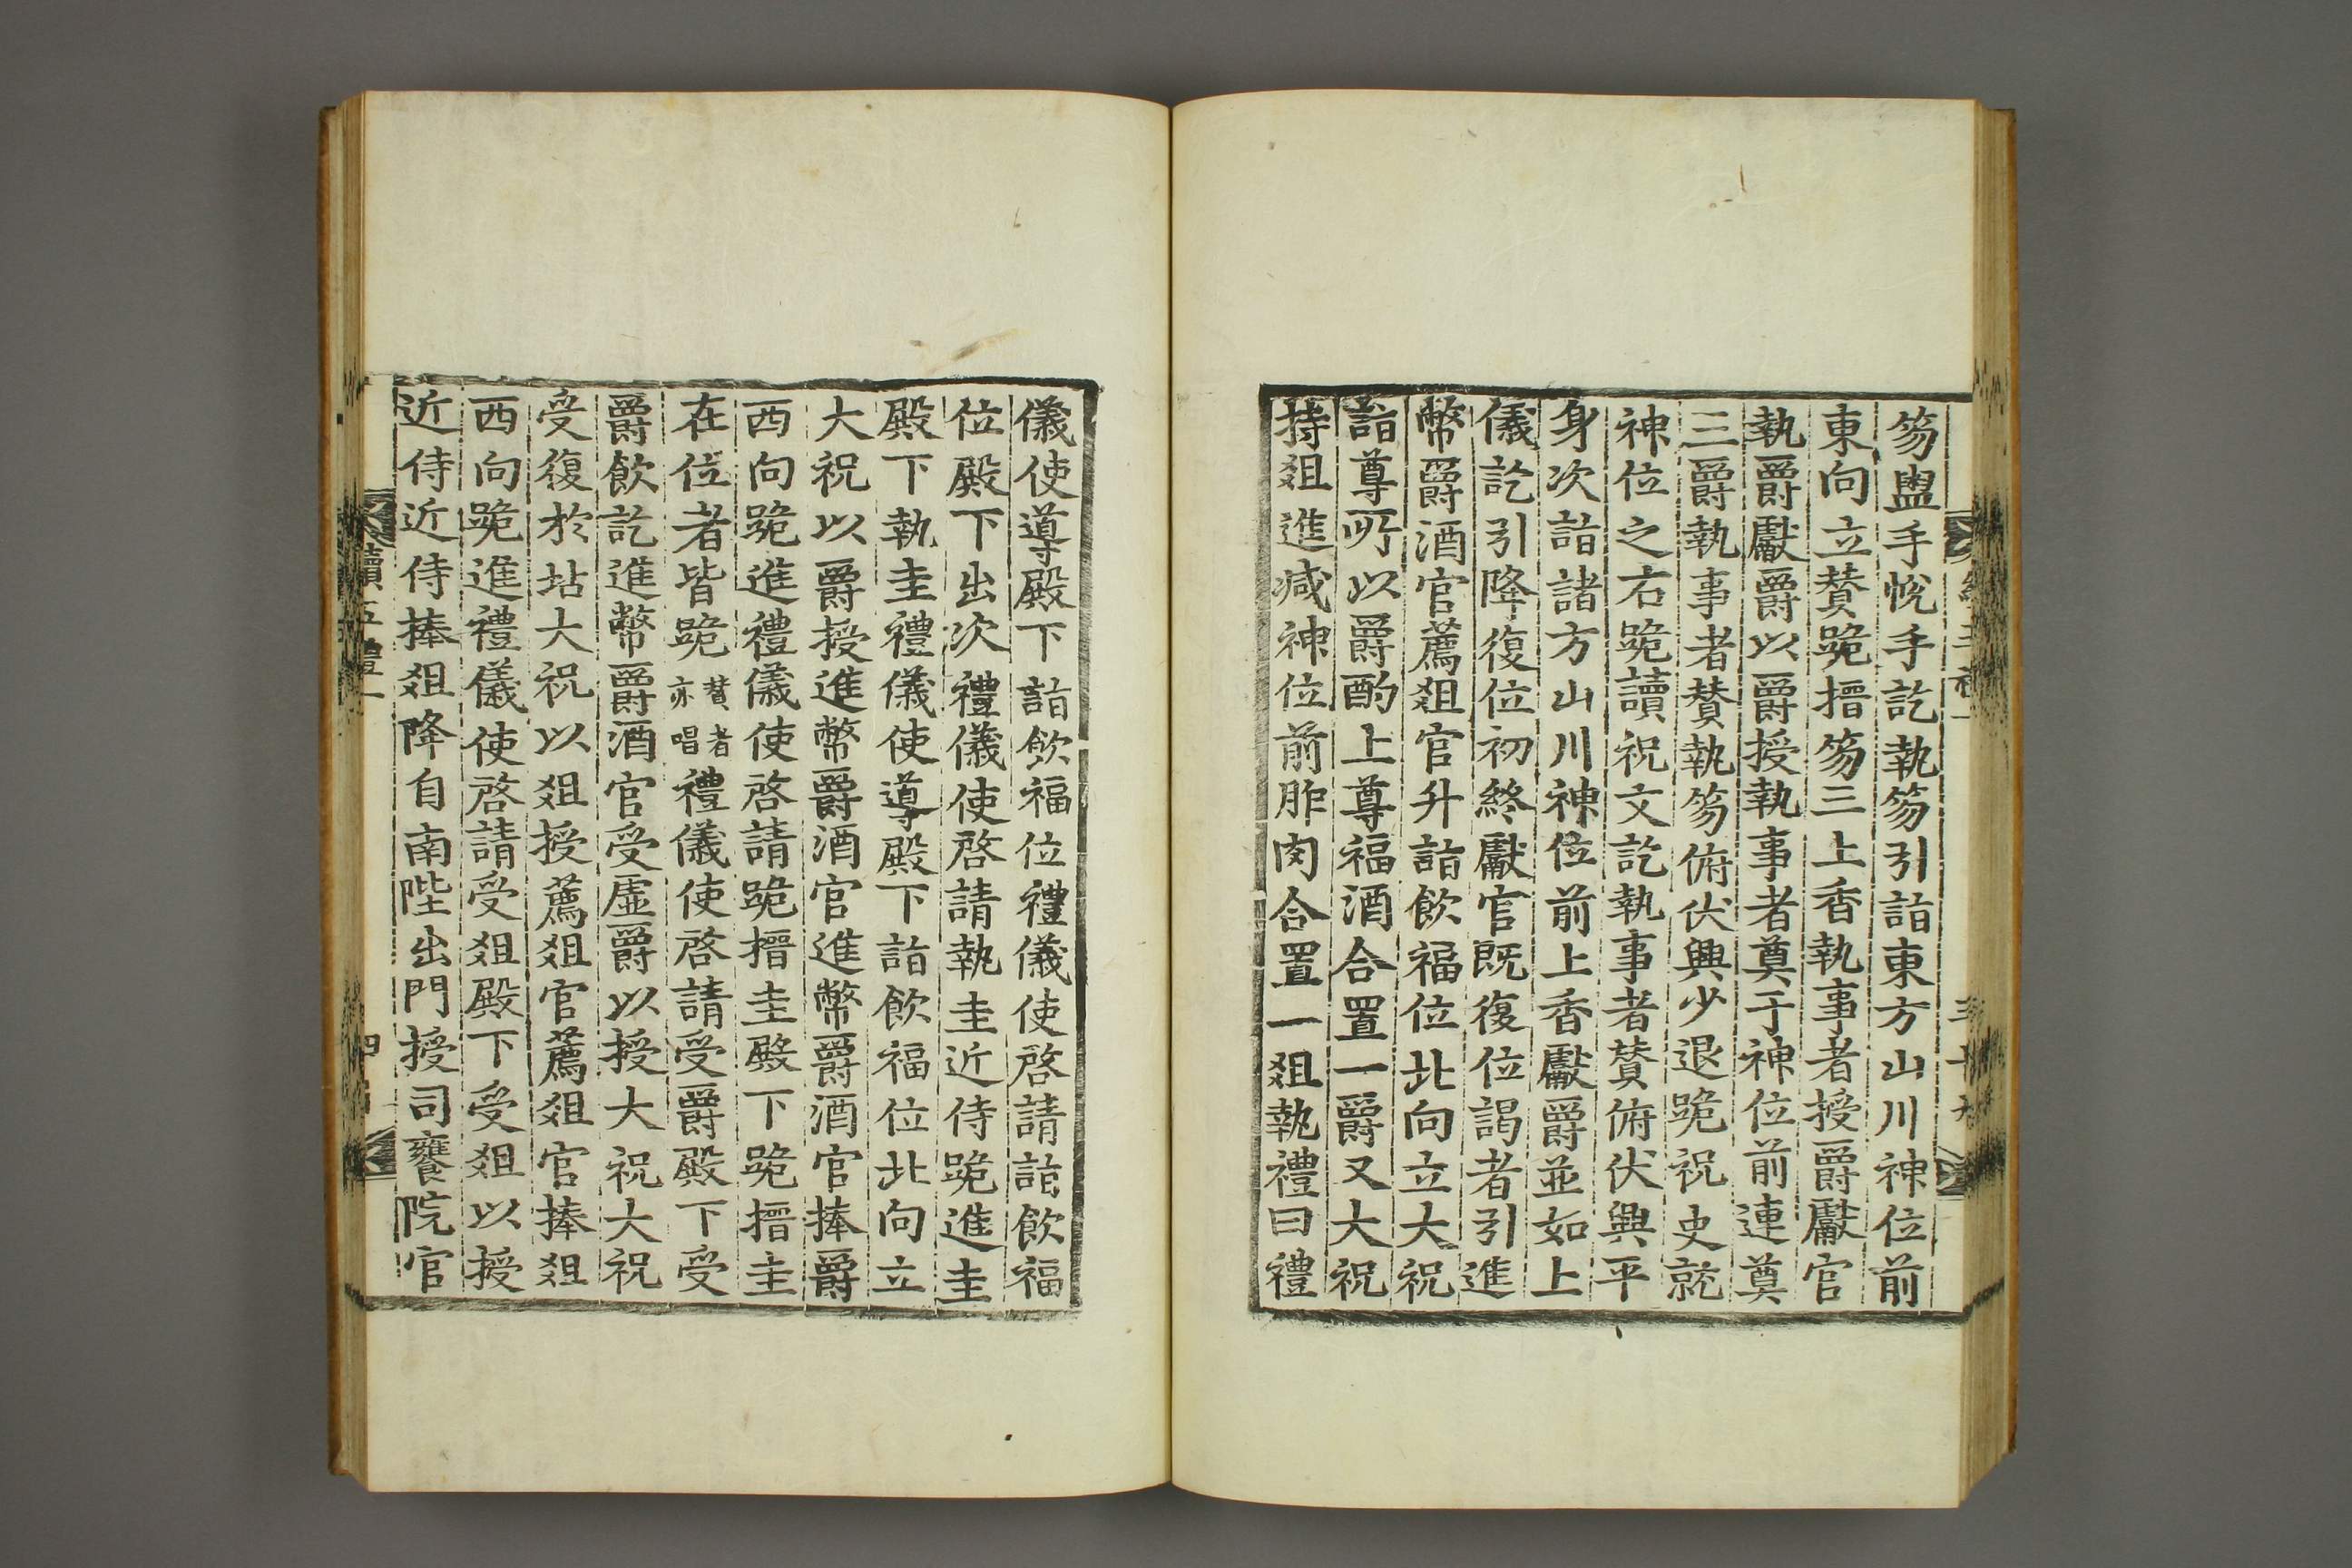 笏盥手帨手訖執笏引詣東方山川神位前
東向立贊跪搢笏三上香執事者授爵獻官
執爵獻爵以爵授執事者奠于神位前連奠
三爵執事者贊執笏俯伏興少退跪祝史就
神位之右跪讀祝文訖執事者贊俯伏興平
身次詣諸方山川神位前上香獻爵並如上
儀訖引降復位初終獻官旣復位謁者引進
幣爵酒官薦俎官升詣飮福位北向立大祝
詣尊所以爵酌上尊福酒合置一爵又大祝
持俎進减神位前胙肉合置一俎執禮曰禮
儀使導殿下詣飮福位禮儀使啓請詣飮福
位殿下出次禮儀使啓請執圭近侍跪進圭
殿下執圭禮儀使導殿下詣飮福位北向立
大祝以爵授進幣爵酒官進幣爵酒官捧爵
西向跪進禮儀使啓請跪搢圭殿下跪搢圭
在位者皆跪贊者亦唱禮儀使啓請受爵殿下受
爵飮訖進幣爵酒官受虛爵以授大祝大祝
受復於坫大祝以俎授薦俎官薦俎官捧俎
西向跪進禮儀使啓請受俎殿下受俎以授
近侍近侍捧俎降自南陛出門授司饔院官
續五禮一